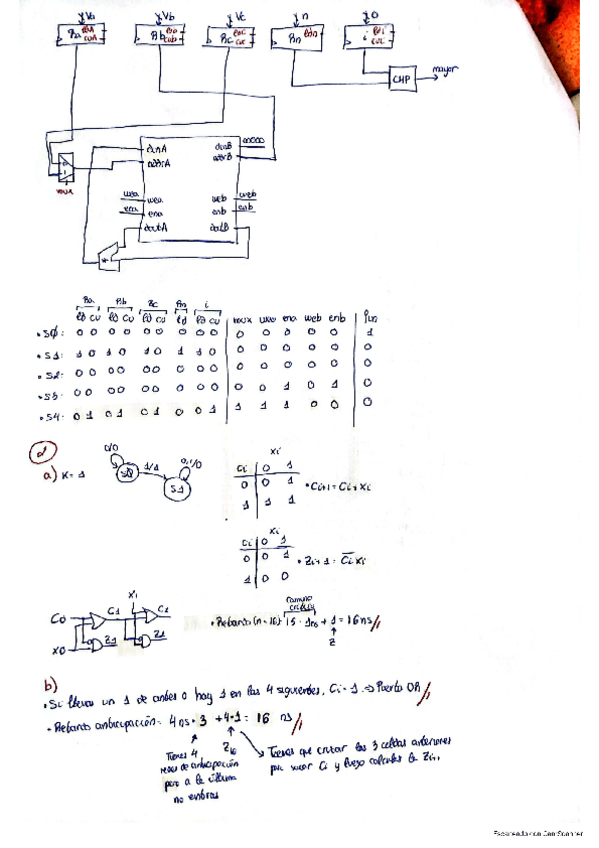 Va Vb Vc n 0
Ra ldA cuA Rb ldB cuB Rc ldC cuC Rn ldn i ldi cui
CMP mayor
dinA dinB 00000
addrA addrB
mux
wea wea web web
ena ena enb enb
doutA doutB
Ra Rb Rc Rn i
ld cu ld cu ld cu ld ld cu mux wea ena web enb Fin
• S0: 0 0 0 0 0 0 0 0 0 0 0 0 0 0 1
• S1: 1 0 1 0 1 0 1 1 0 0 0 0 0 0 0
• S2: 0 0 0 0 0 0 0 0 0 0 0 0 0 0 0
• S3: 0 0 0 0 0 0 0 0 0 0 0 1 0 1 0
• S4: 0 1 0 1 0 1 0 0 1 1 1 1 0 0 0
2
a) K = 1
0/0 S0 1/1 0,1/0 S1
Xi
Ci 0 1
0 0 1
1 1 1
• Ci+1 = Ci + Xi
Xi
Ci 0 1
0 0 1
1 0 0
• Zi+1 = Ci Xi
C0 C1 X1 C2
X0 Z1 Z1
camino crítico
• Retardo (n=16) 15 · 1ns + 1 = 16 ns //
Z
b)
• Si llevas un 1 de antes o hay 1 en las 4 siguientes, Ci = 1 → Puerta OR //
• Retardo anticipación = 4 ns · 3 + 4·1 = 16 ns //
Tienes 4 redes de anticipación pero a la última no entras
Z16
Tienes que cruzar las 3 celdas anteriores para sacar Ci y luego calcular la Zi+1
Escaneado con CamScanner